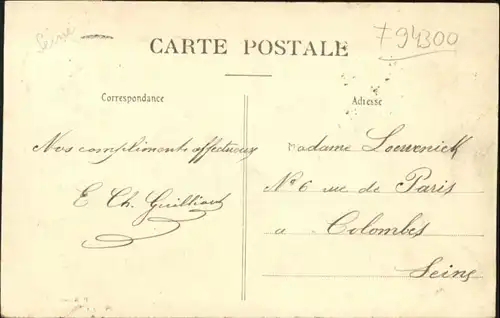 Seine
7 94300
CARTE POSTALE
Correspondance
Adresse
Nos compliments affectueux
E Ch. Guilliout
Madame Loewenick
Nº 6 rue de Paris
a Colombes
Seine